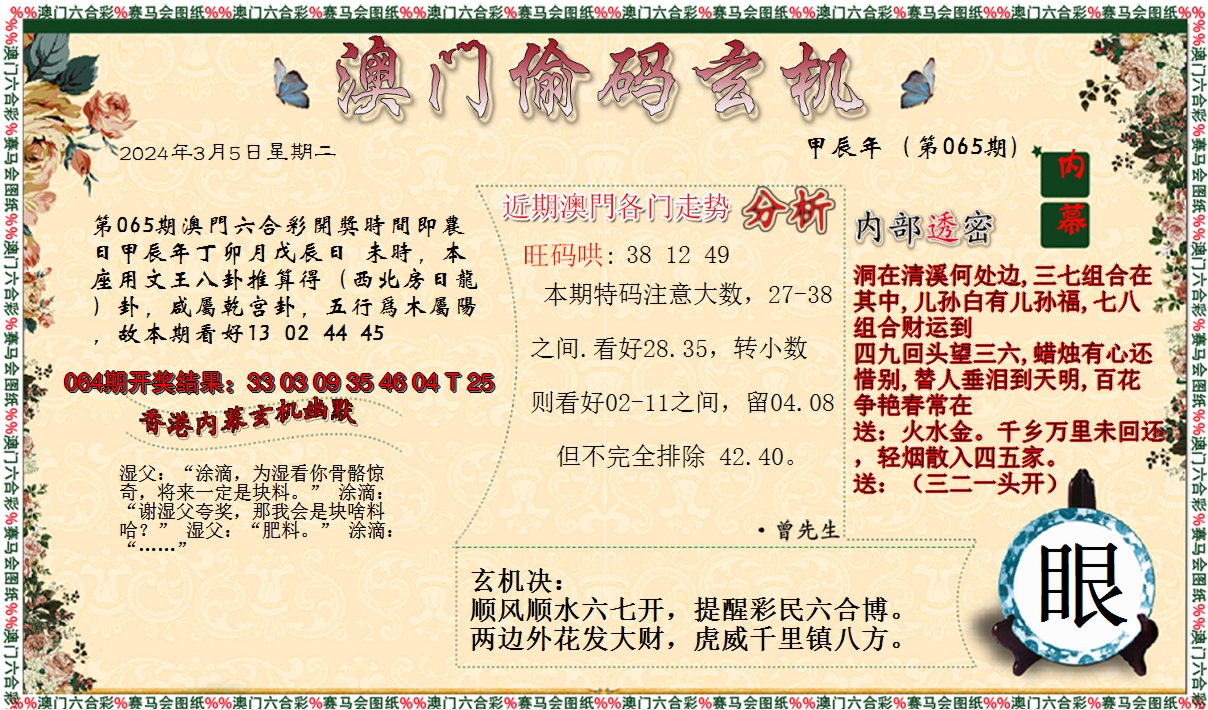 %%澳门六合彩%赛马会图纸%%澳门六合彩%赛马会图纸%%澳门六合彩%赛马会图纸%%澳门六合彩%赛马会图纸%%澳门六合彩%赛马会图纸%%澳门六合彩%赛马会图纸%%
澳门偷码玄机
2024年3月5日星期二
甲辰年（第065期）
内
幕
第065期澳門六合彩開獎時間即農
日甲辰年丁卯月戊辰日 未時，本
座用文王八卦推算得（西北房日龍
）卦，咸屬乾宫卦，五行爲木屬陽
，故本期看好13 02 44 45
064期开奖结果：33 03 09 35 46 04 T 25
香港内幕玄机幽默
湿父：“涂滴，为湿看你骨骼惊
奇，将来一定是块料。” 涂滴：
“谢湿父夸奖，那我会是块啥料
哈？” 湿父：“肥料。” 涂滴：
“……”
近期澳門各门走势 分析
旺码哄: 38 12 49
本期特码注意大数，27-38
之间.看好28.35，转小数
则看好02-11之间，留04.08
但不完全排除 42.40。
·曾先生
内部透密
洞在清溪何处边,三七组合在
其中,儿孙白有儿孙福,七八
组合财运到
四九回头望三六,蜡烛有心还
惜别,替人垂泪到天明,百花
争艳春常在
送：火水金。千乡万里未回还
，轻烟散入四五家。
送：（三二一头开）
玄机决：
顺风顺水六七开，提醒彩民六合博。
两边外花发大财，虎威千里镇八方。
眼
%%澳门六合彩%赛马会图纸%%澳门六合彩%赛马会图纸%%澳门六合彩%赛马会图纸%%澳门六合彩%赛马会图纸%%澳门六合彩%赛马会图纸%%澳门六合彩%赛马会图纸%%